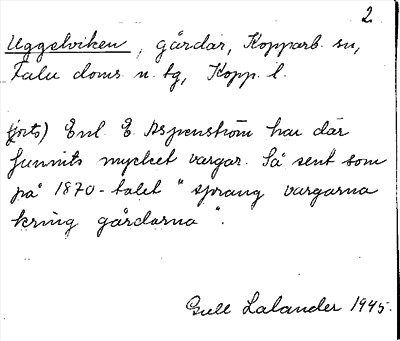 2
Uggelviken, gårdar, Kopparb. sn,
Falu doms. n. tg, Kopp. l.
(forts) Enl. E. Aspenström har där
funnits mycket vargar. Så sent som
på 1870-talet "sprang vargarna
kring gårdarna".
Gull Lalander 1945.